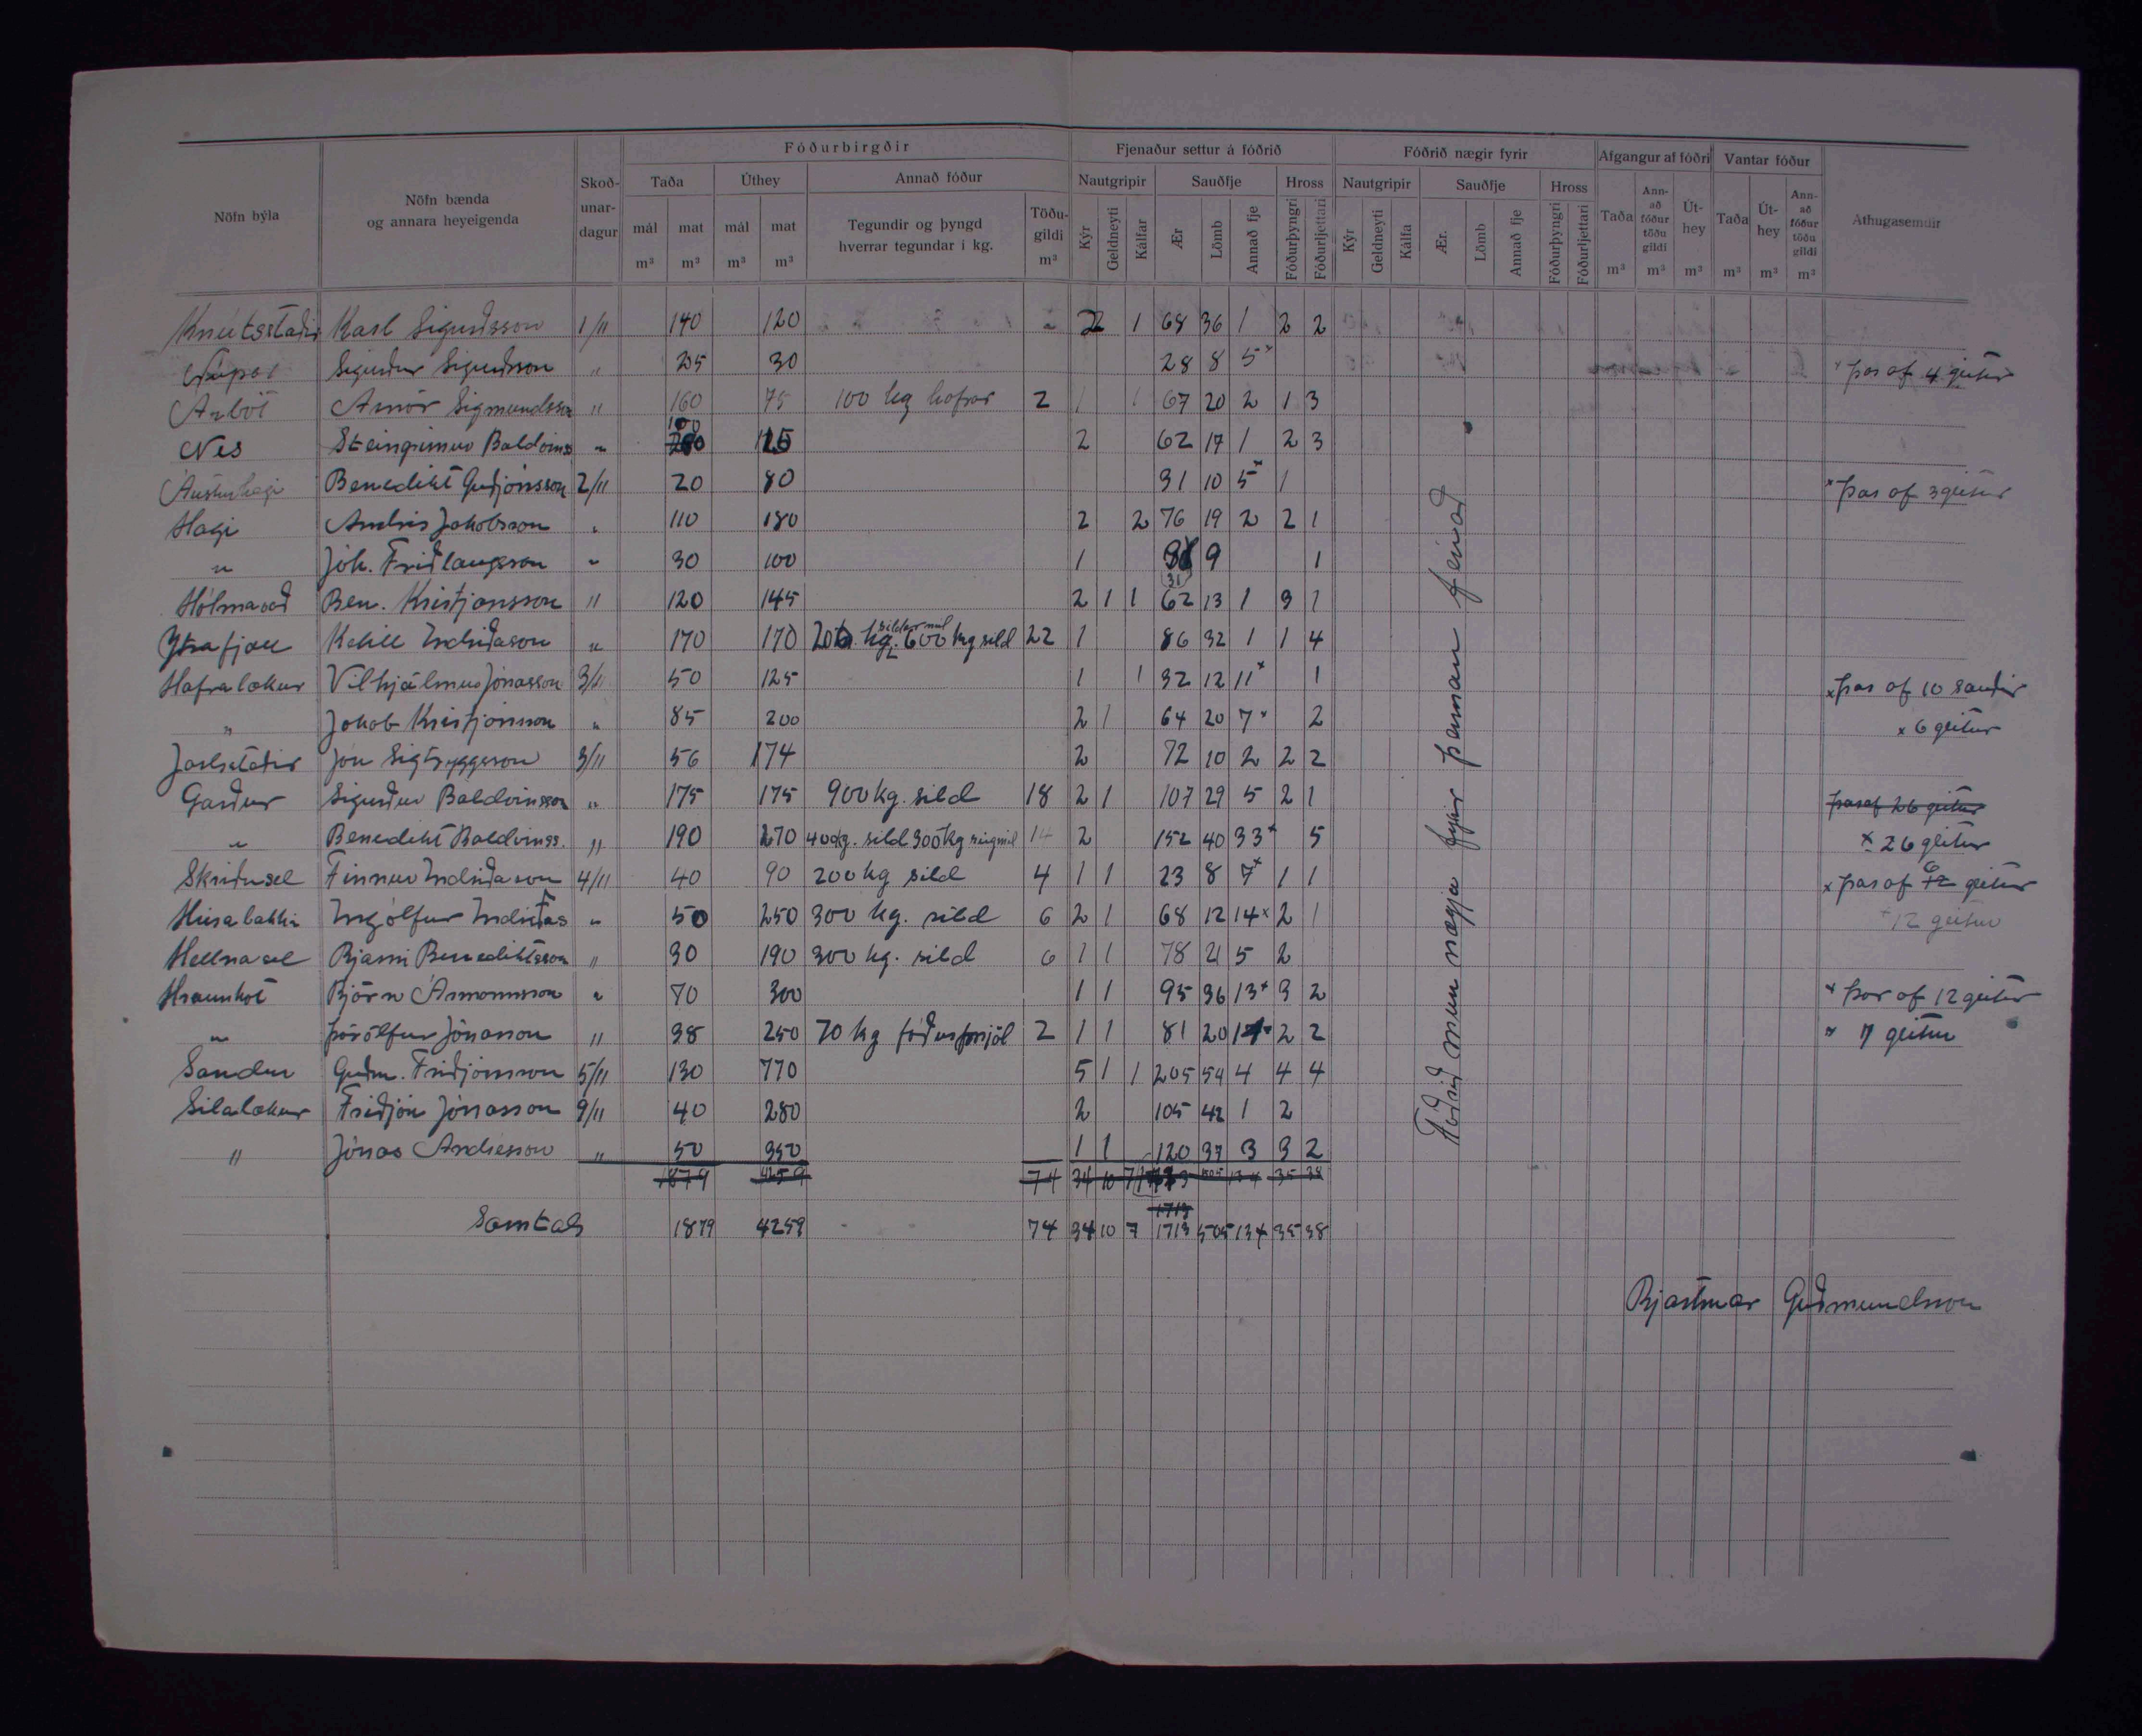 Fóðurbirgðir Fjenaður settur á fóðrið Fóðrið nægir fyrir Afgangur af fóðri Vantar fóður
Nöfn býla Nöfn bænda og annara heyeigenda Skoð-unar-dagur Taða Úthey Annað fóður Nautgripir Sauðfje Hross Nautgripir Sauðfje Hross Taða Ann-að fóður töðu gildi Út-hey Taða Út-hey Ann-að fóður töðu gildi Athugasemdir
mál m³ mat m³ mál m³ mat m³ Tegundir og þyngd hverrar tegundar í kg. Töðu-gildi m³ Kýr Geldneyti Kálfar Ær Lömb Annað fje Fóðurþyngri Fóðurljettari Kýr Geldneyti Kálfa Ær. Lömb Annað fje Fóðurþyngri Fóðurljettari m³ m³ m³ m³ m³ m³
Knútsstaðir Karl Sigurðsson 1/11 140 120 " 2 1 68 36 1 2 2
Núpar Sigurður Sigurðsson " 25 30 28 8 5x x þar af 4 geitur
Árbót Arnór Sigmundsson " 160 75 100 kg hafrar 2 1 1 67 20 2 1 3
Nes Steingrímur Baldvinss " 100 125 2 62 17 1 2 3
Austurhagi Benedikt Guðjónsson 2/11 20 80 31 10 5x 1 x þar af 3 geitur
Hagi Andris Jakobsson " 110 180 2 2 76 19 2 2 1
" Jóh. Friðlaugsson " 30 100 1 31 9 1
Hólmavað Ben. Kristjánsson " 120 145 2 1 1 62 13 1 3 1
Ytrafjall Ketill Indriðason " 170 170 200 kg. síldarmél 600 kg síld 22 1 86 32 1 1 4
Hafralækur Vilhjálmur Jónasson 3/11 50 125 1 1 32 12 11x 1 x þar af 10 sauðir
" Jakob Kristjónsson " 85 200 2 1 64 20 7x 2 x 6 geitur
Jarlsstaðir Jón Sigtryggsson 3/11 56 174 2 72 10 2 2 2
Garður Sigurður Baldvinsson " 175 175 900 kg. síld 18 2 1 107 29 5 2 1 þaraf 26 geitur
" Benedikt Baldvinss. " 190 270 400kg. síld 300kg 14 2 152 40 33x 5 x 26 geitur
Skriðusel Finnur Indriðason 4/11 40 90 200 kg síld 4 1 1 23 8 7x 1 1 x þar af 12 6 geitur
Húsabakki Ingólfur Indriðas " 50 250 300 kg. síld 6 2 1 68 12 14x 2 1 x 12 geitur
Hellnasel Bjarni Benediktsson " 30 190 300 kg. síld 6 1 1 78 21 5 2
Hraunkot Björn Ármannsson " 70 300 1 1 95 36 13x 3 2 x þar af 12 geitur
" Þórólfur Jónasson " 38 250 70 kg fóðurmjöl 2 1 1 81 20 2 2 x 7 geitur
Sandur Guðm. Friðjónsson 5/11 130 770 5 1 1 205 54 4 4 4
Sílalækur Friðjón Jónasson 9/11 40 280 2 105 42 1 2
" Jónas Andrésson " 50 350 1 1 120 37 3 3 2
1879 4259 74 34 10 7 505 134 35 38
1713
Samtals 1879 4259 74 34 10 7 1713 505 134 35 38
Fóðrið mun nægja fyrir þennan fénað
Bjartmar Guðmundsson